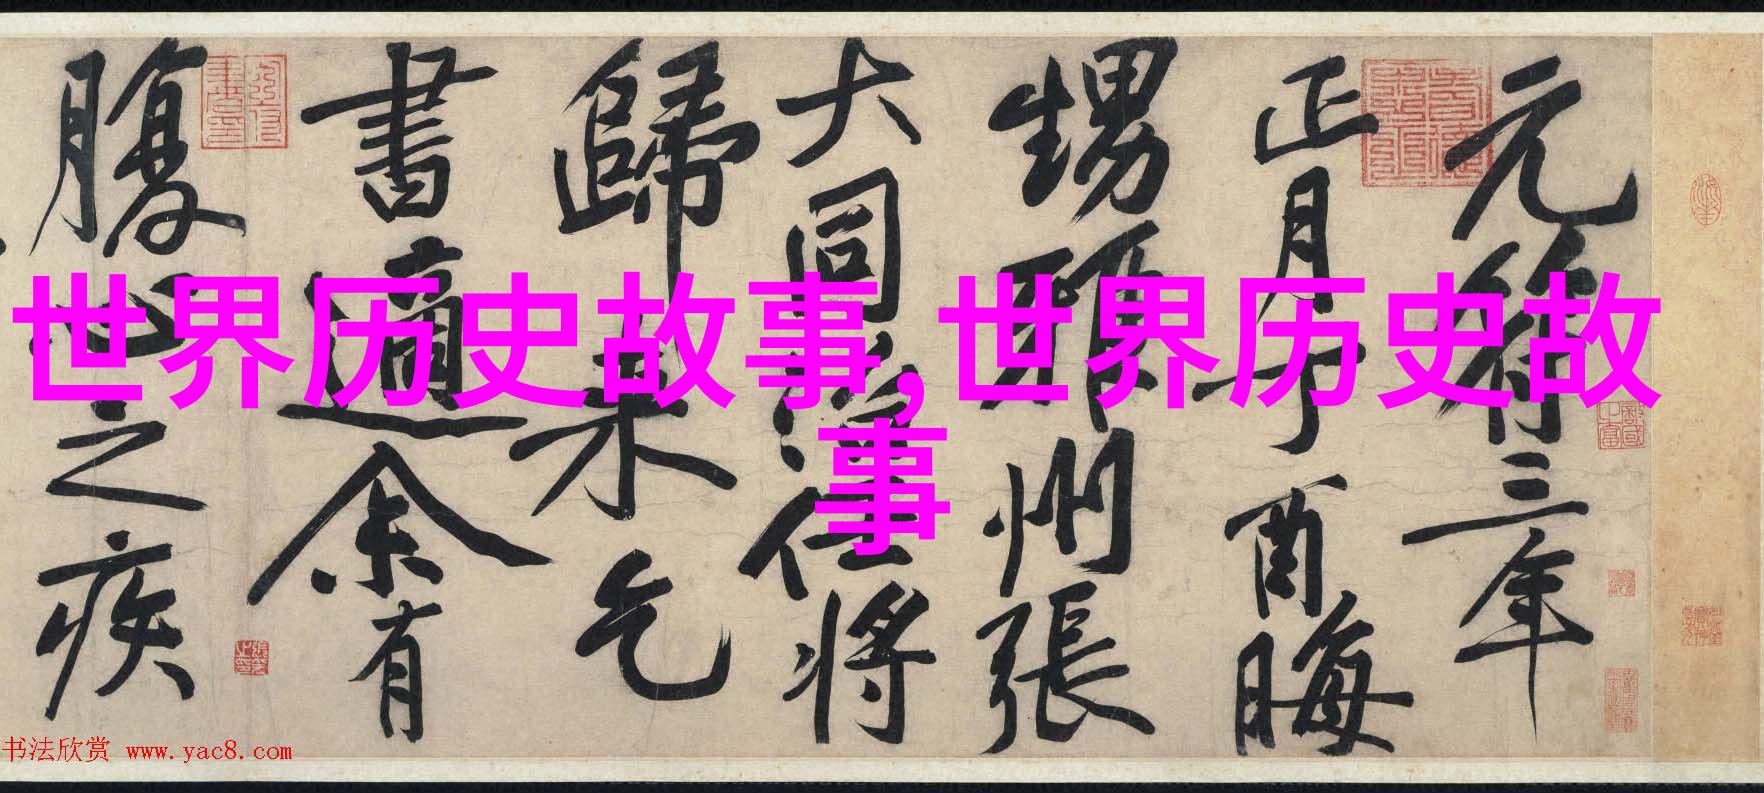 世界历史故事,世界历史故
事
元符三年
正月丁酉晦
甥雅州張
大同治任將
歸來乞
書適余有
腹心之疾
书法欣赏 www.yac8.com